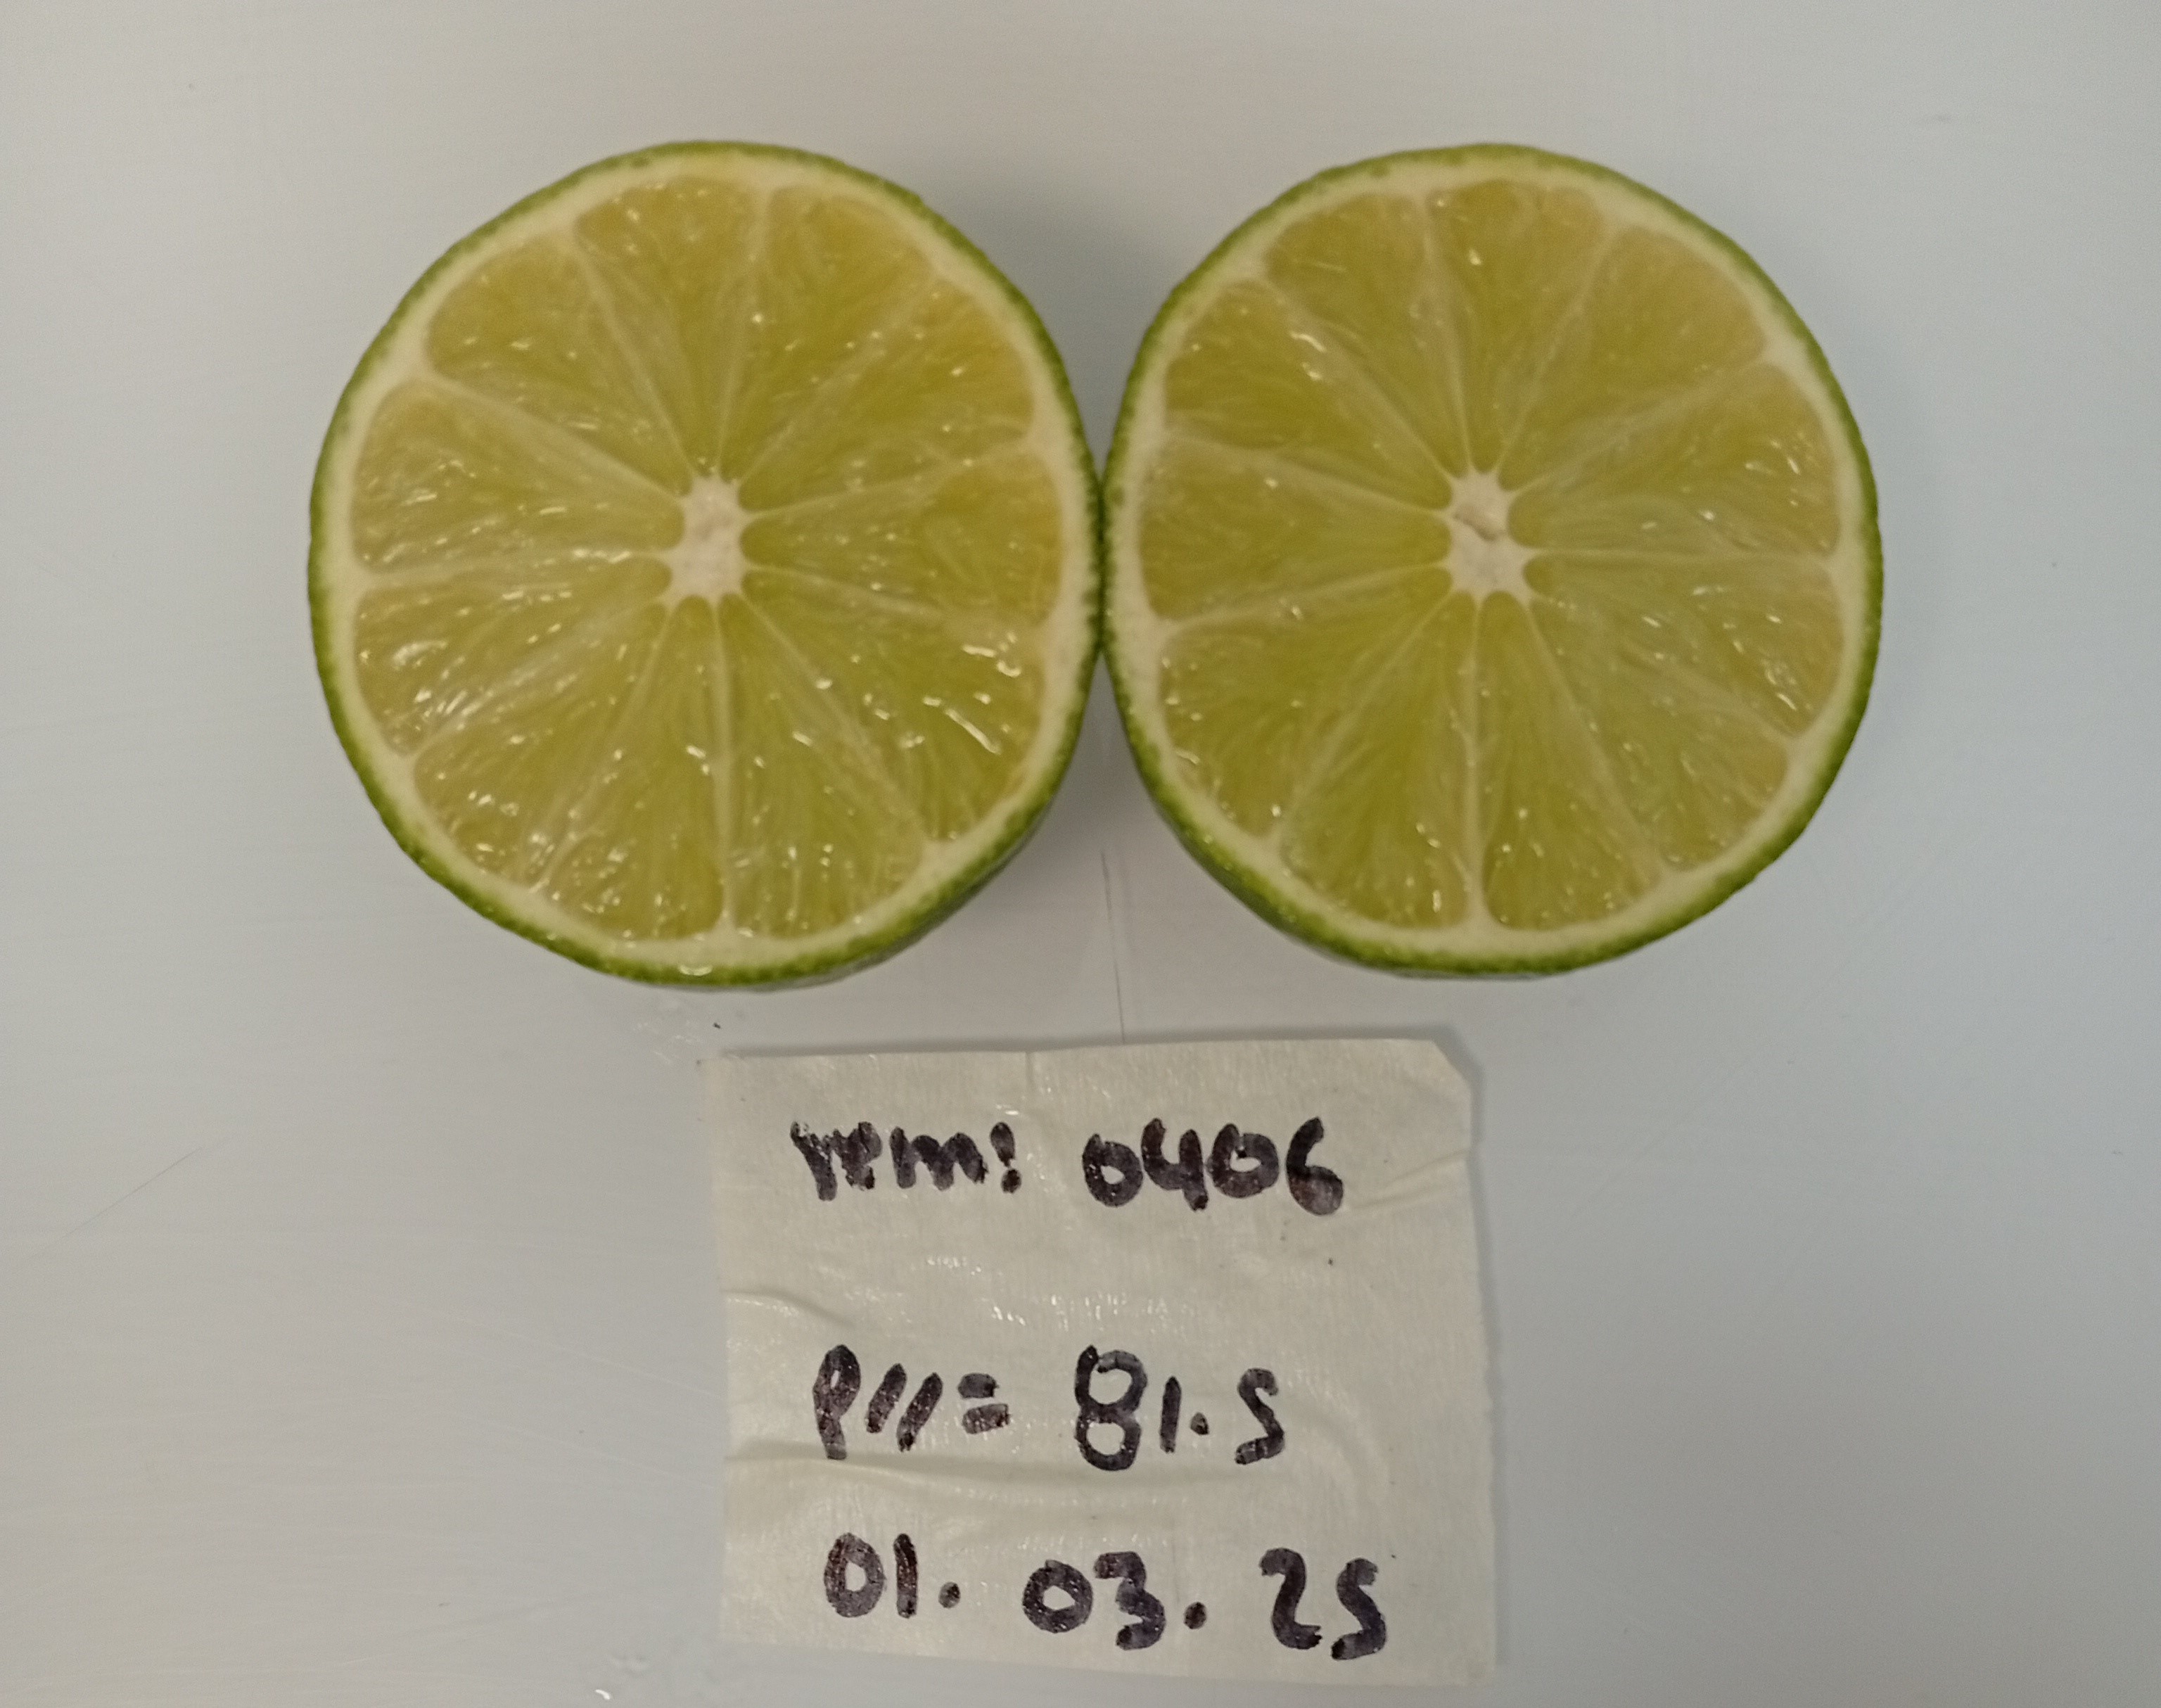 rem: 0406
P11= 81.5
01.03.25